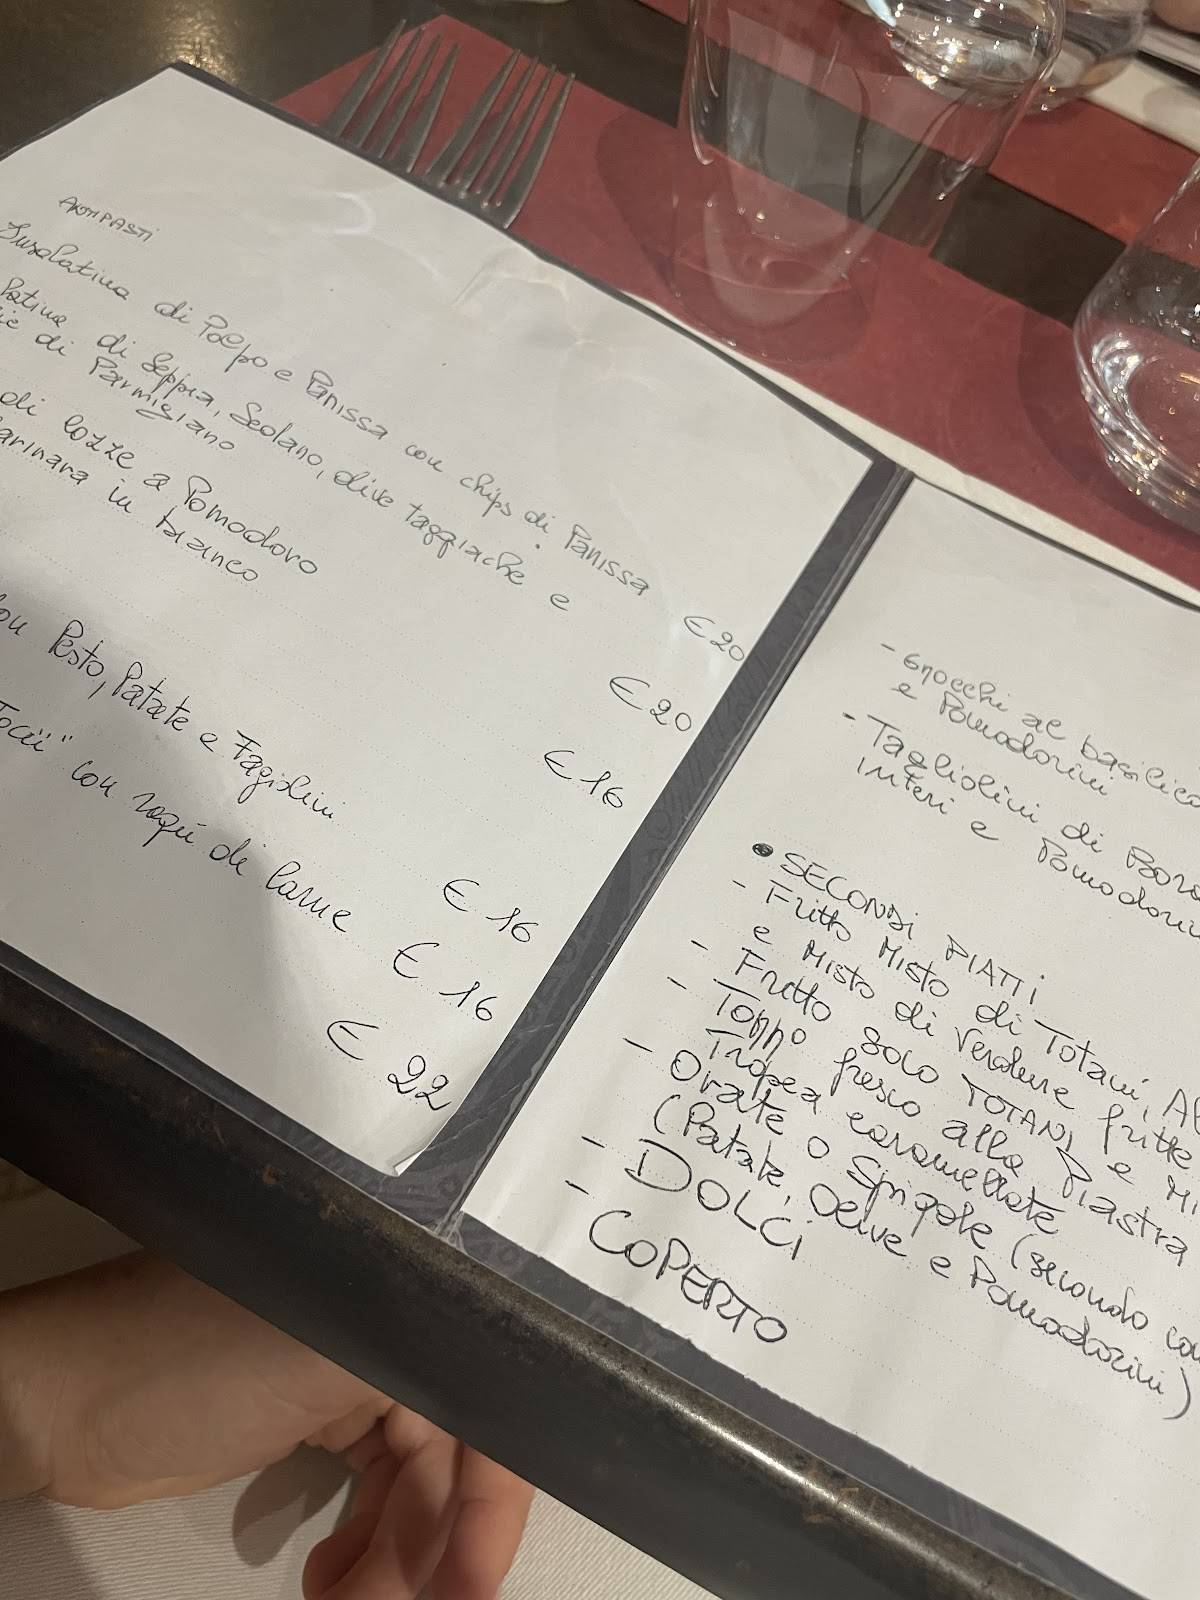 ANTIPASTI
Insalatina di Polpo e Panissa con chips di Panissa €20
Patina di Seppia, Sedano, olive taggiache e €20
di Parmigiano
di Cozze a Pomodoro €16
arinara in bianco
Pesto, Patate e Fagiolini €16
con ragù di Carne €16
€22
- Gnocchi al basilico
e Pomodorini
- Tagliolini di Bora
interi e Pomodorini
• SECONDI PIATTI
- Fritto Misto di Totani, Al
e Misto di Verdure fritte
- Fritto solo TOTANI e
- Tonno fresco alla piastra
Tropea caramellate
- Orate o Spigole (secondo
(Patate, Olive e Pomodorini)
- DOLCI
- COPERTO